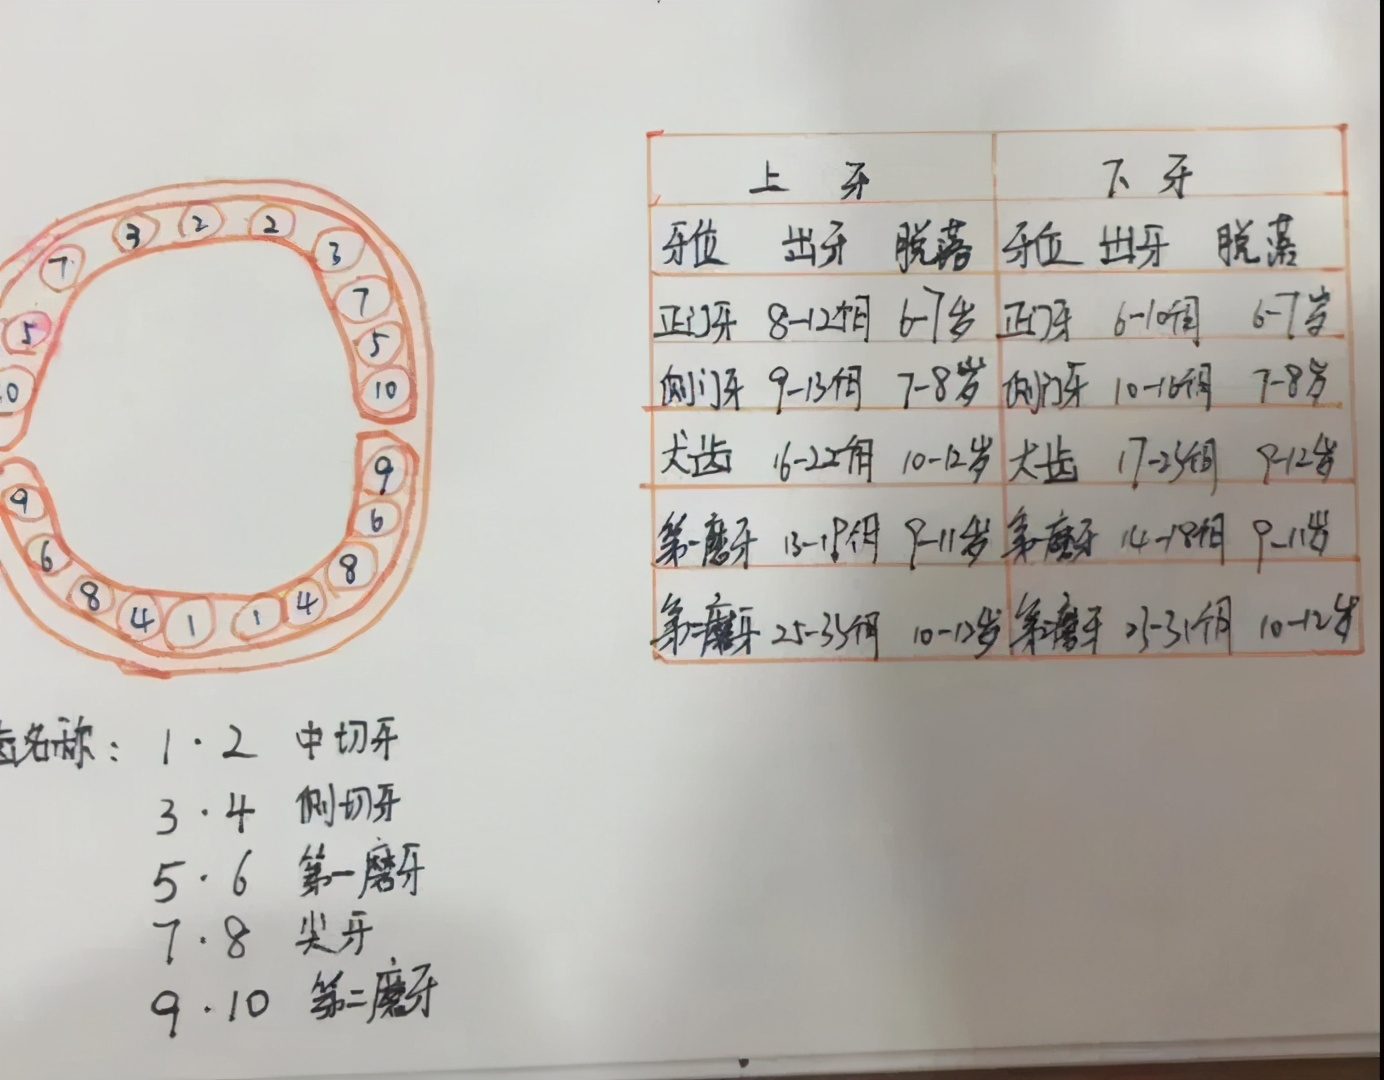 3 2 2 3
7 7
5 5
10 10
9 9
6 6
8 4 1 1 4 8
齿名称: 1·2 中切牙
3·4 侧切牙
5·6 第一磨牙
7·8 尖牙
9·10 第二磨牙
上牙 下牙
牙位 出牙 脱落 牙位 出牙 脱落
正门牙 8-12个月 6-7岁 正门牙 6-10个月 6-7岁
侧门牙 9-13个月 7-8岁 侧门牙 10-16个月 7-8岁
犬齿 16-22个月 10-12岁 犬齿 17-23个月 9-12岁
第一磨牙 13-19个月 9-11岁 第一磨牙 14-18个月 9-11岁
第二磨牙 25-33个月 10-12岁 第二磨牙 23-31个月 10-12岁